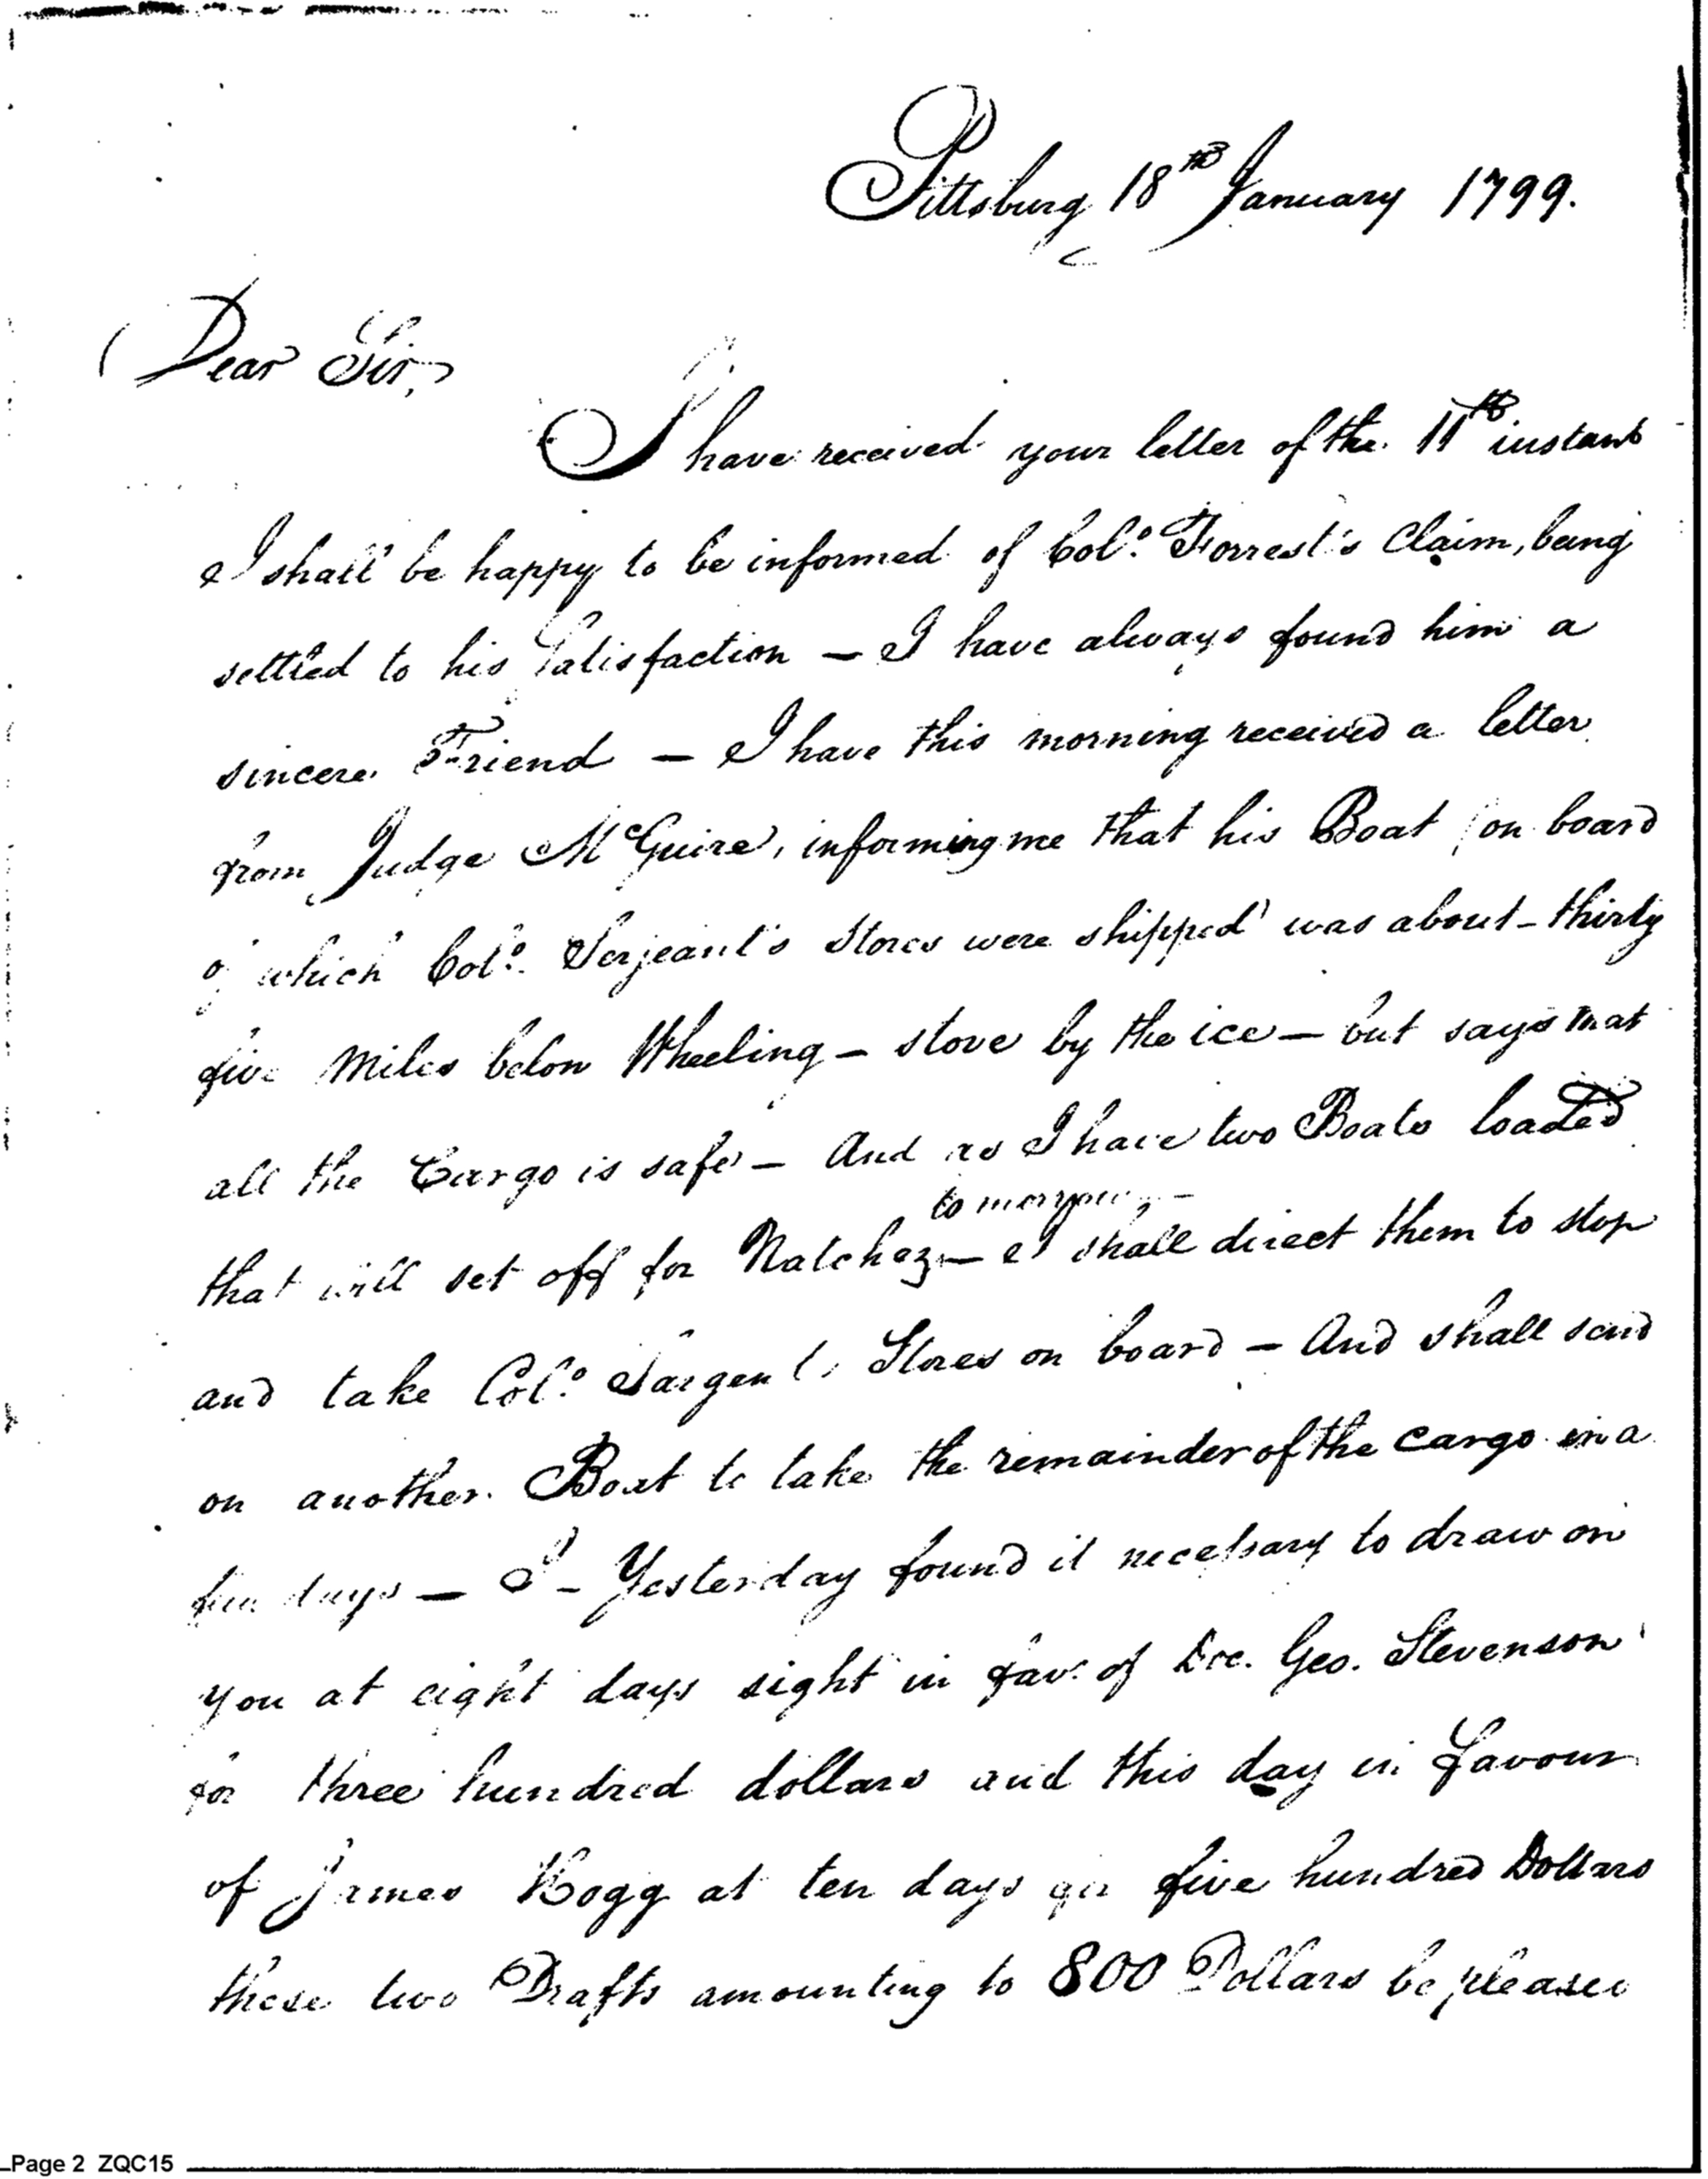 Pittsburg 18th January 1799.
Dear Sir,
I have received your letter of the 11th instant
I shall be happy to be informed of Colo. Forrest's Claim, being
settled to his Satisfaction — I have always found him a
sincere Friend — I have this morning received a letter
from Judge McGuire, informing me that his Boat (on board
of which Colo. Serjeant's Stores were shipped) was about thirty
five Miles below Wheeling — stove by the ice — but says that
all the Cargo is safe — And as I have two Boats loaded
to morrow, —
that will set off for Natchez — I shall direct them to stop
and take Colo. Sargent's Stores on board — And shall send
on another Boat to take the remainder of the cargo in a
few days — I — Yesterday found it necessary to draw on
you at eight days sight in fav. of Geo. Stevenson
for three hundred dollars and this day in favour
of James at ten days for five hundred Dollars
these two Drafts amounting to 800 Dollars be pleased
Page 2 ZQC15